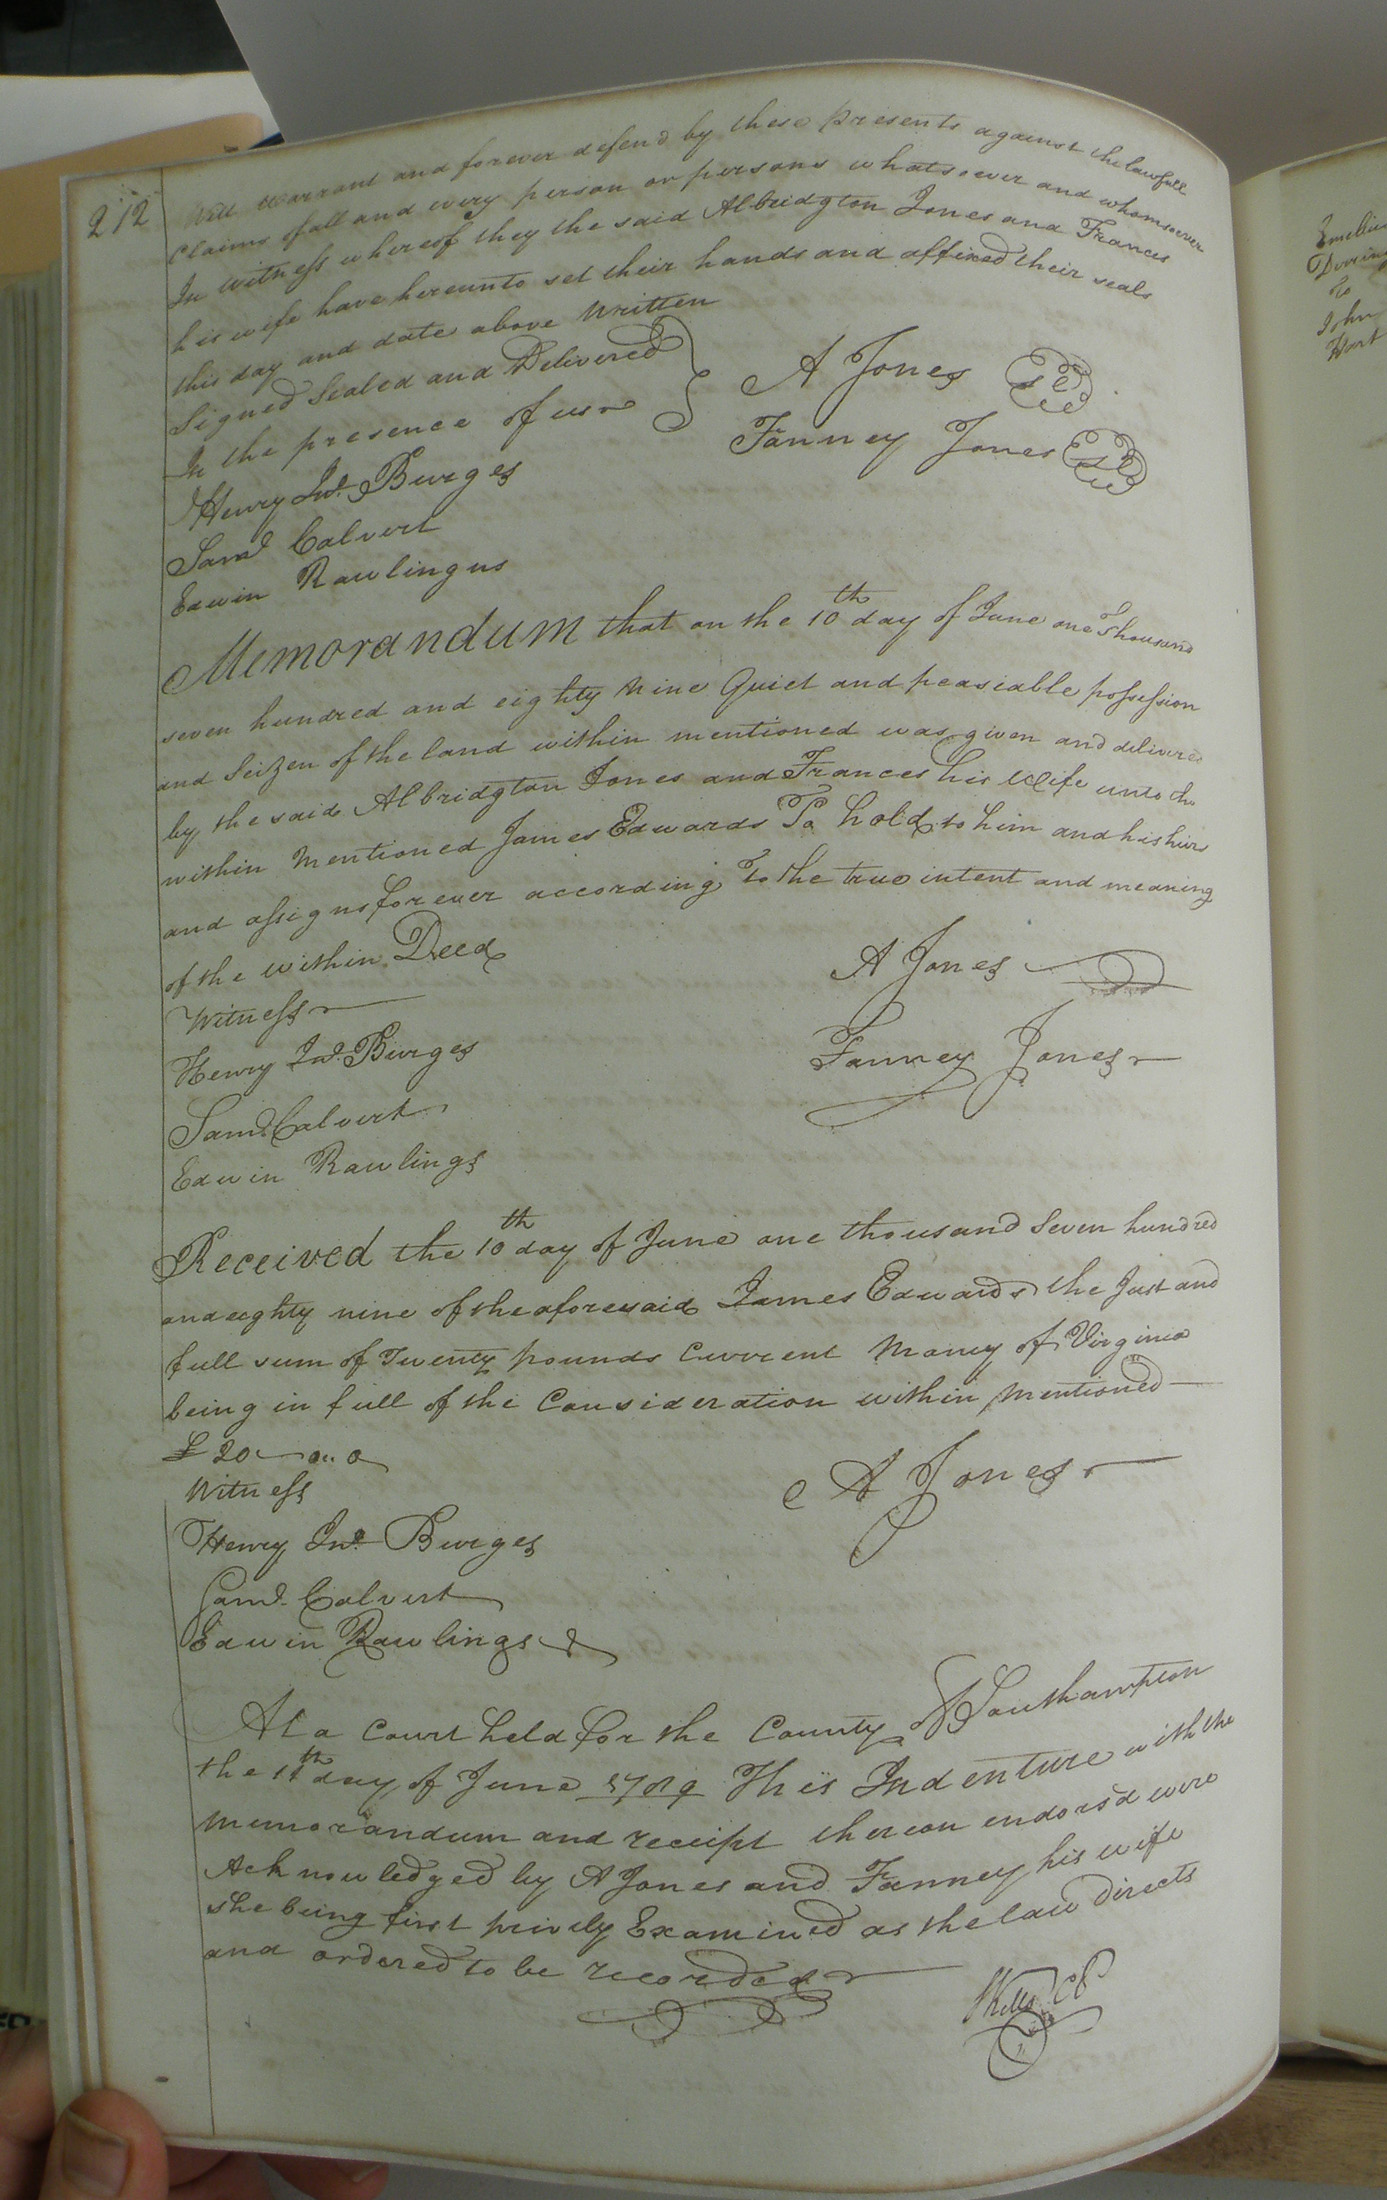 212
Will Warrant and forever defend by these presents against the lawfull
Claims of all and every person or persons whatsoever and whomsoever
In Witness whereof they the said Albridgton Jones and Frances
his wife have hereunto set their hands and affixed their seals
this day and date above Written
Signed Sealed and Delivered
In the presence of us
A Jones
Fanney Jones
Henry Jno. Burges
Saml Calvert
Edwin Rawlingus
Memorandum that on the 10th day of June one Thousand
seven hundred and eighty Nine Quiet and peasiable possession
and Seizen of the land within mentioned was given and delivered
by the said Albridgton Jones and Frances his Wife unto the
within Mentioned James Edwards To hold to him and his heirs
and assigns forever according To the true intent and meaning
of the within Deed
Witness
A Jones
Henry Jno. Burges
Fanney Jones
Saml. Calvert
Edwin Rawlings
Received the 10th day of June one thousand Seven hundred
and eighty nine of the aforesaid James Edwards the Just and
full sum of Twenty pounds Current Money of Virginia
being in full of the Consideration within Mentioned
£ 20 — 0 .. 0
Witness
A Jones
Henry Jno. Burges
Saml. Calvert
Edwin Rawlings
At a Court held for the County of Southampton
the 11th day of June 1789 This Indenture with the
Memorandum and receipt thereon endorsd were
Acknowledged by A Jones and Fanney his wife
she being first privily Examined as the law Directs
and ordered to be recorded
Emelius
To
John